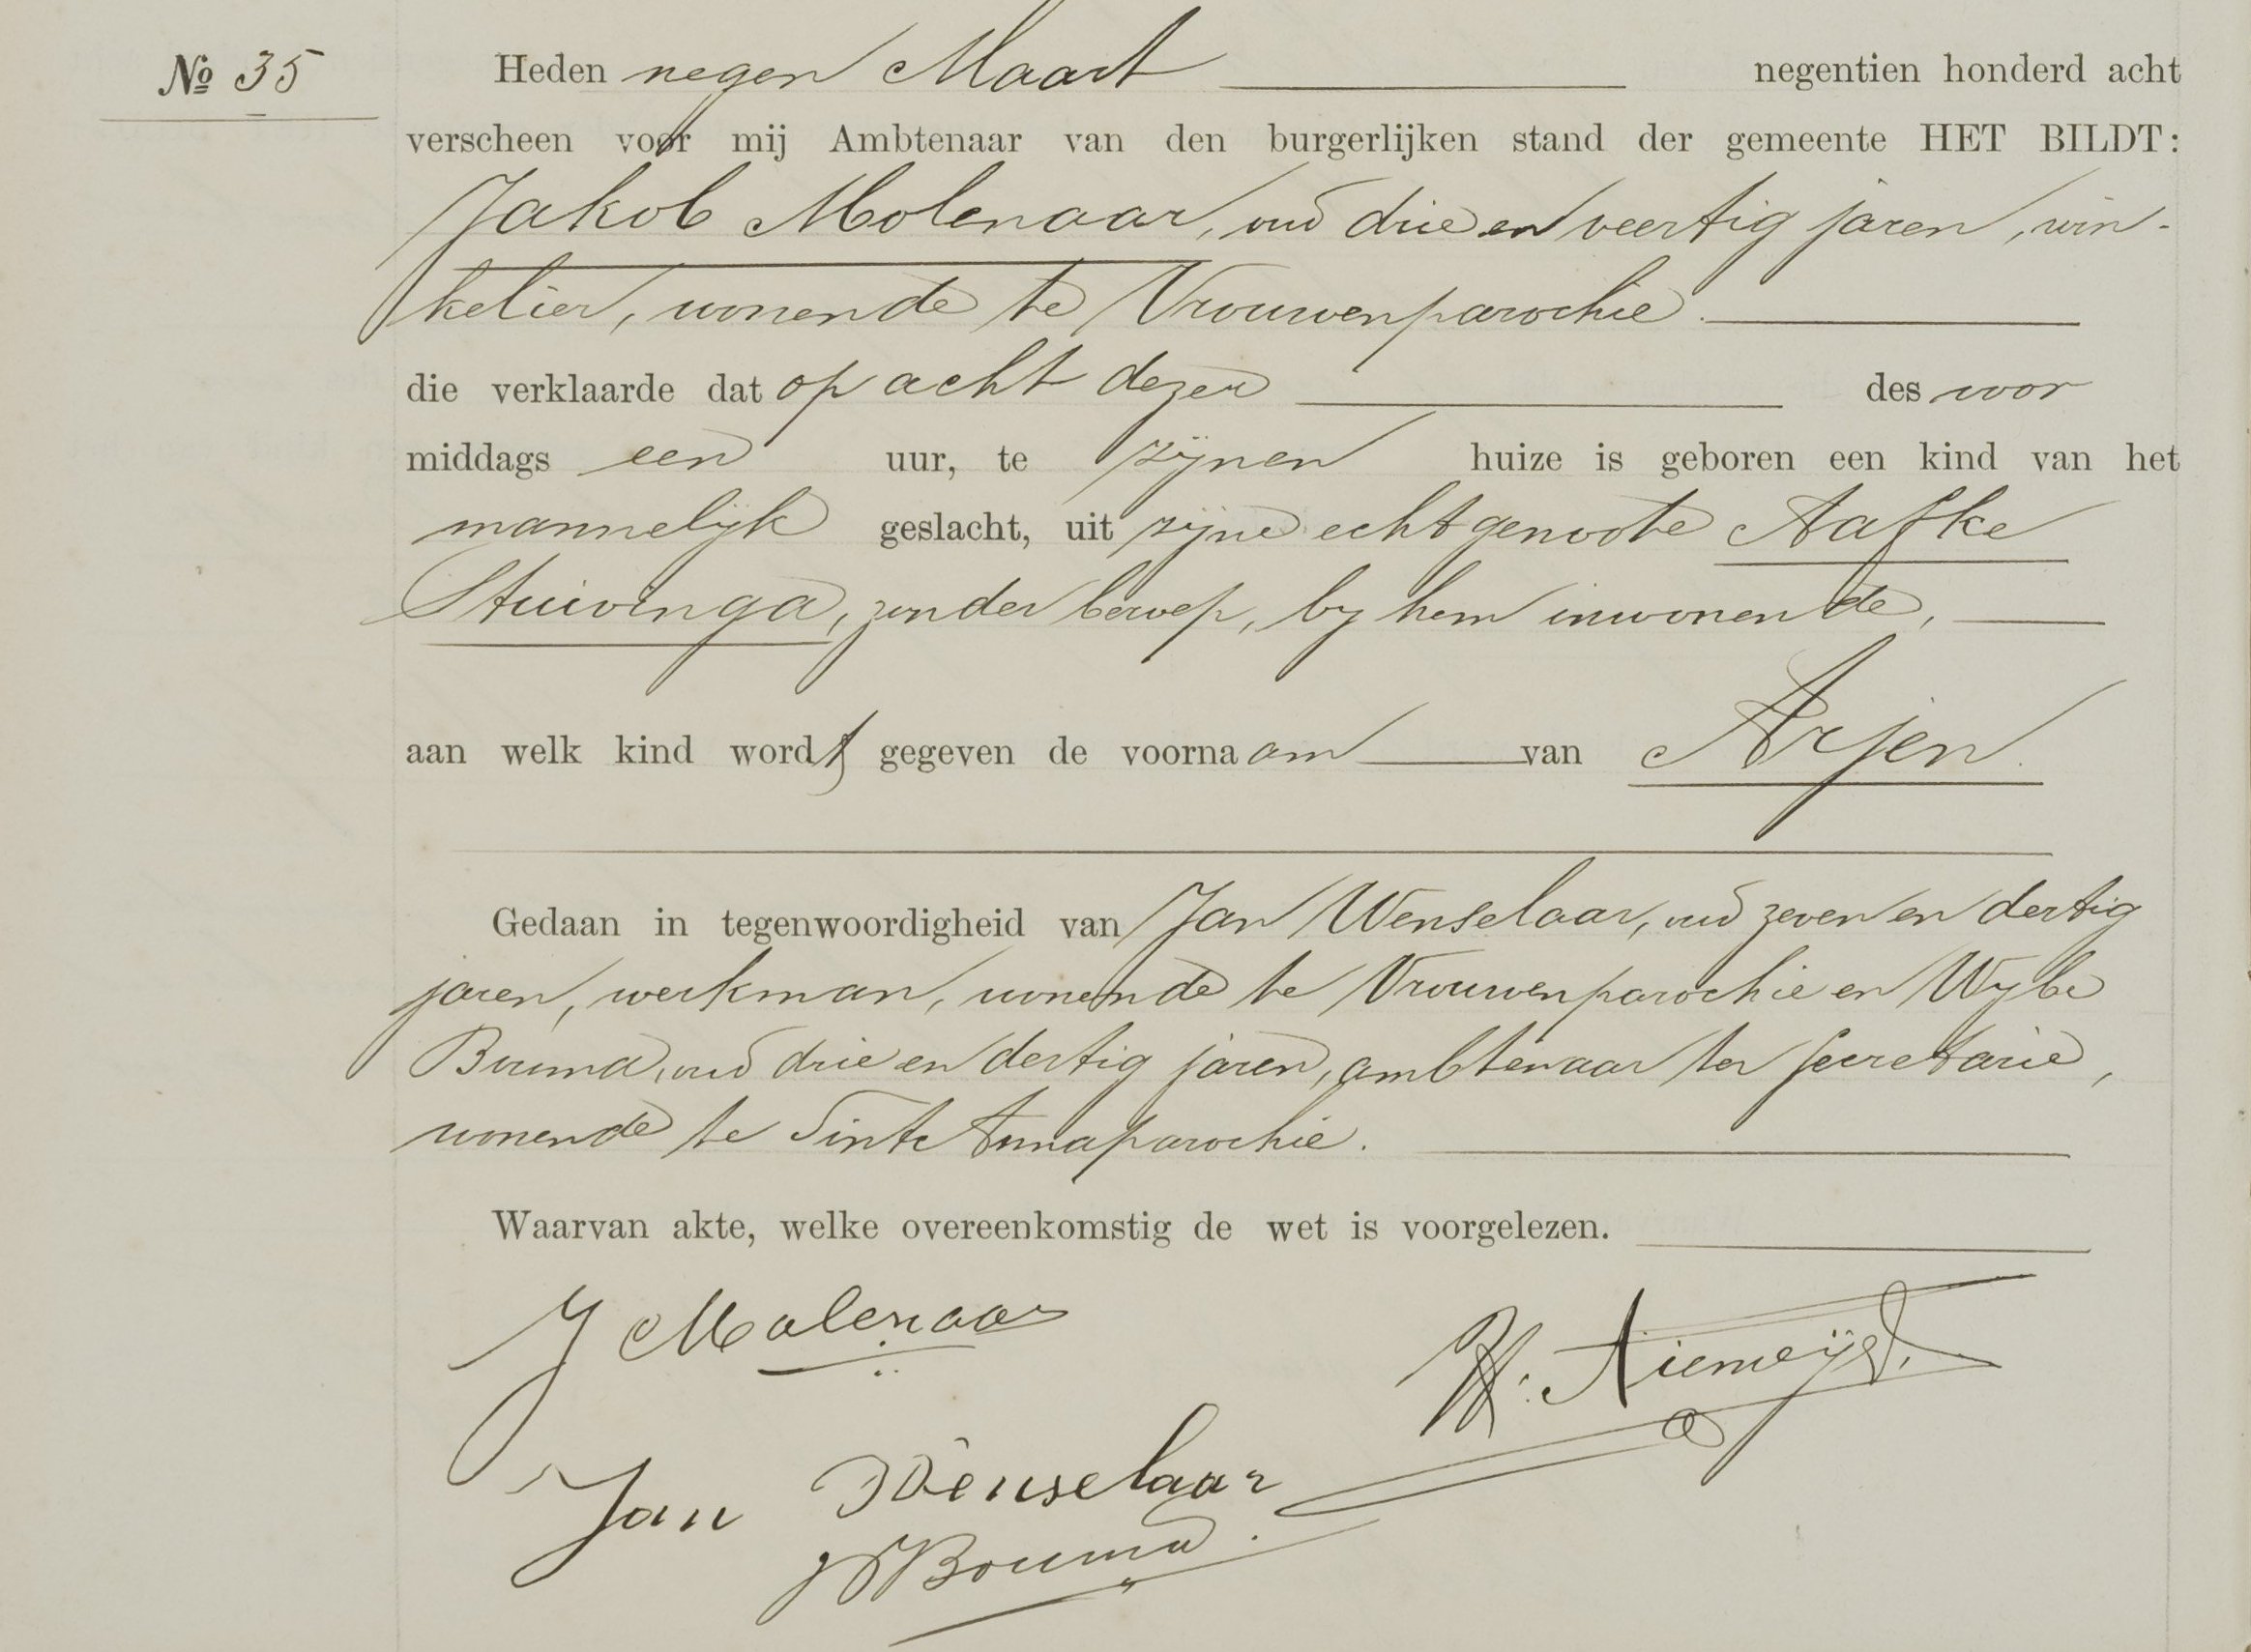 № 35
Heden negen Maart negentien honderd acht
verscheen voor mij Ambtenaar van den burgerlijken stand der gemeente HET BILDT:
Jakob Molenaar, oud drie en veertig jaren, win-
kelier, wonende te Vrouwenparochie.
die verklaarde dat op acht dezer des voor
middags een uur, te zijnen huize is geboren een kind van het
mannelijk geslacht, uit zijne echtgenoote Aafke
Stuivinga, zonder beroep, bij hem inwonende,
aan welk kind wordt gegeven de voornaam van Arjen.
Gedaan in tegenwoordigheid van Jan Wenselaar, oud zeven en dertig
jaren, werkman, wonende te Vrouwenparochie en Wybe
Bouma, oud drie en dertig jaren, ambtenaar ter secretarie,
wonende te Sint Annaparochie.
Waarvan akte, welke overeenkomstig de wet is voorgelezen.
J Molenaar
Jan Wenselaar
W Bouma